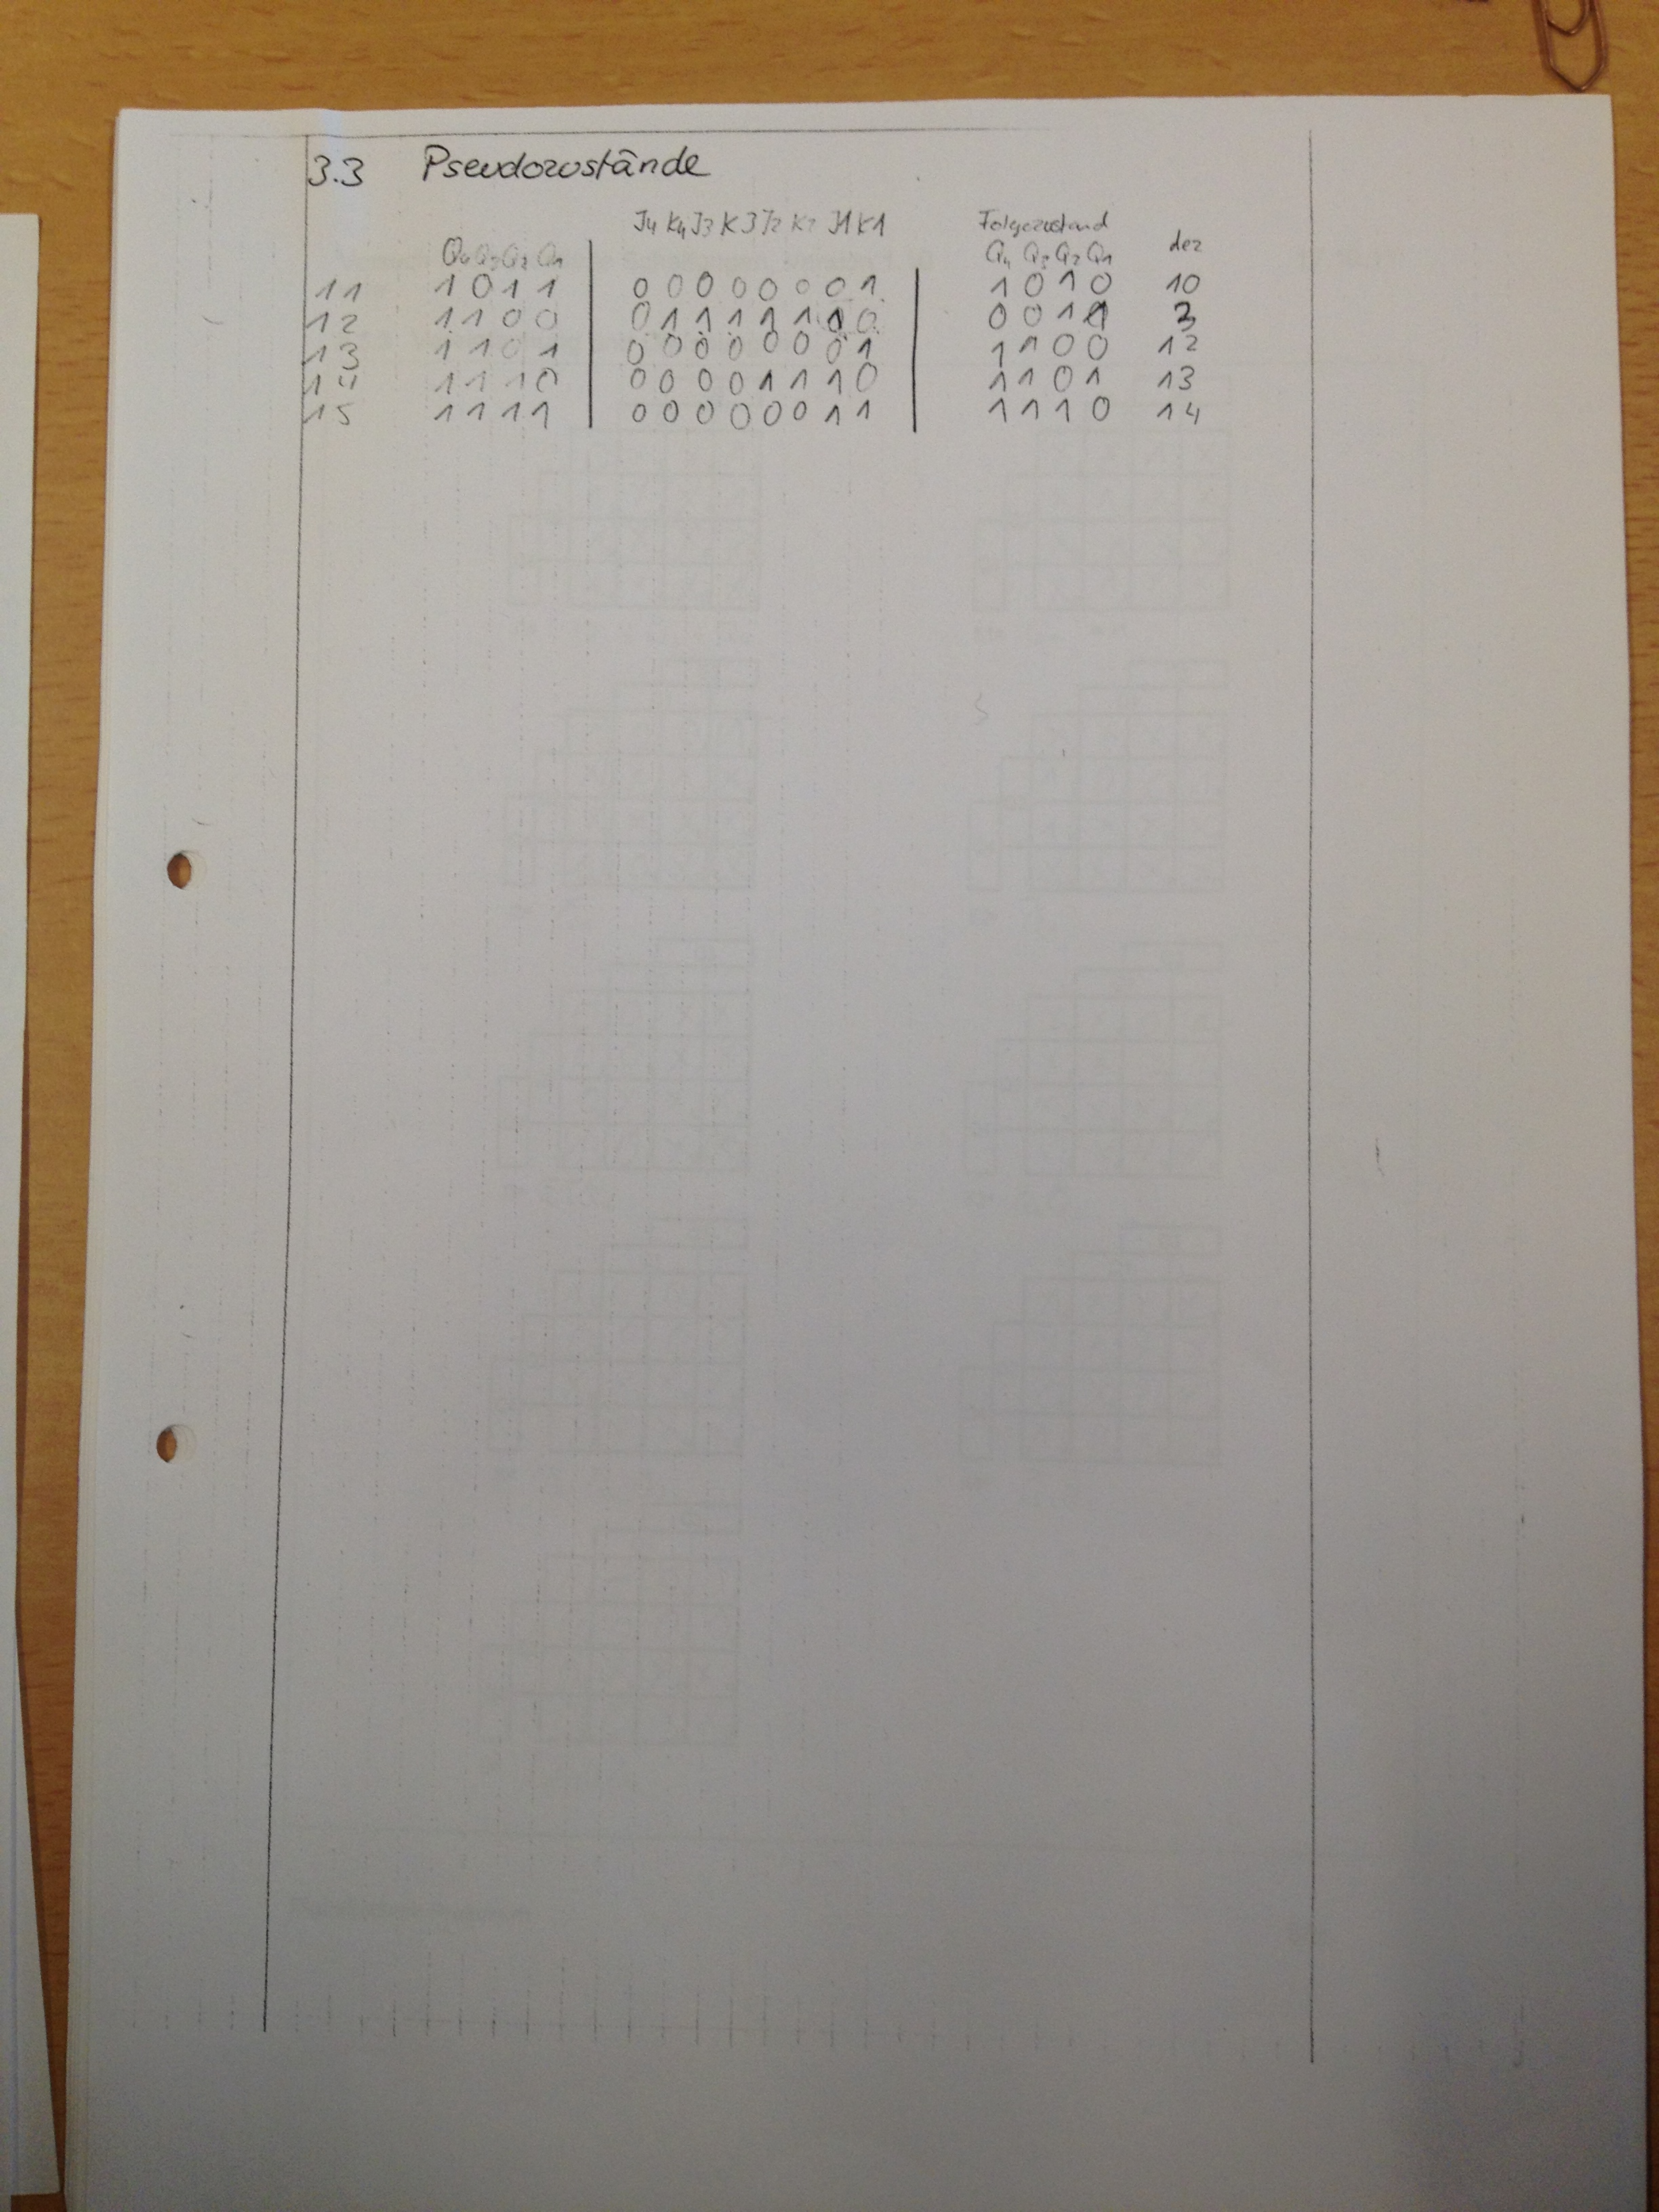 3.3 Pseudozustände
J4 K4 J3 K3 J2 K2 J1 K1 Folgezustand
Q4 Q3 Q2 Q1 Q4 Q3 Q2 Q1 dez
11 1 0 1 1 0 0 0 0 0 0 0 1 1 0 1 0 10
12 1 1 0 0 0 1 1 1 1 1 0 0 0 1 3
13 1 1 0 1 0 0 0 0 0 0 0 1 1 1 0 0 12
14 1 1 1 0 0 0 0 0 1 1 1 0 1 1 0 1 13
15 1 1 1 1 0 0 0 0 0 0 1 1 1 1 1 0 14